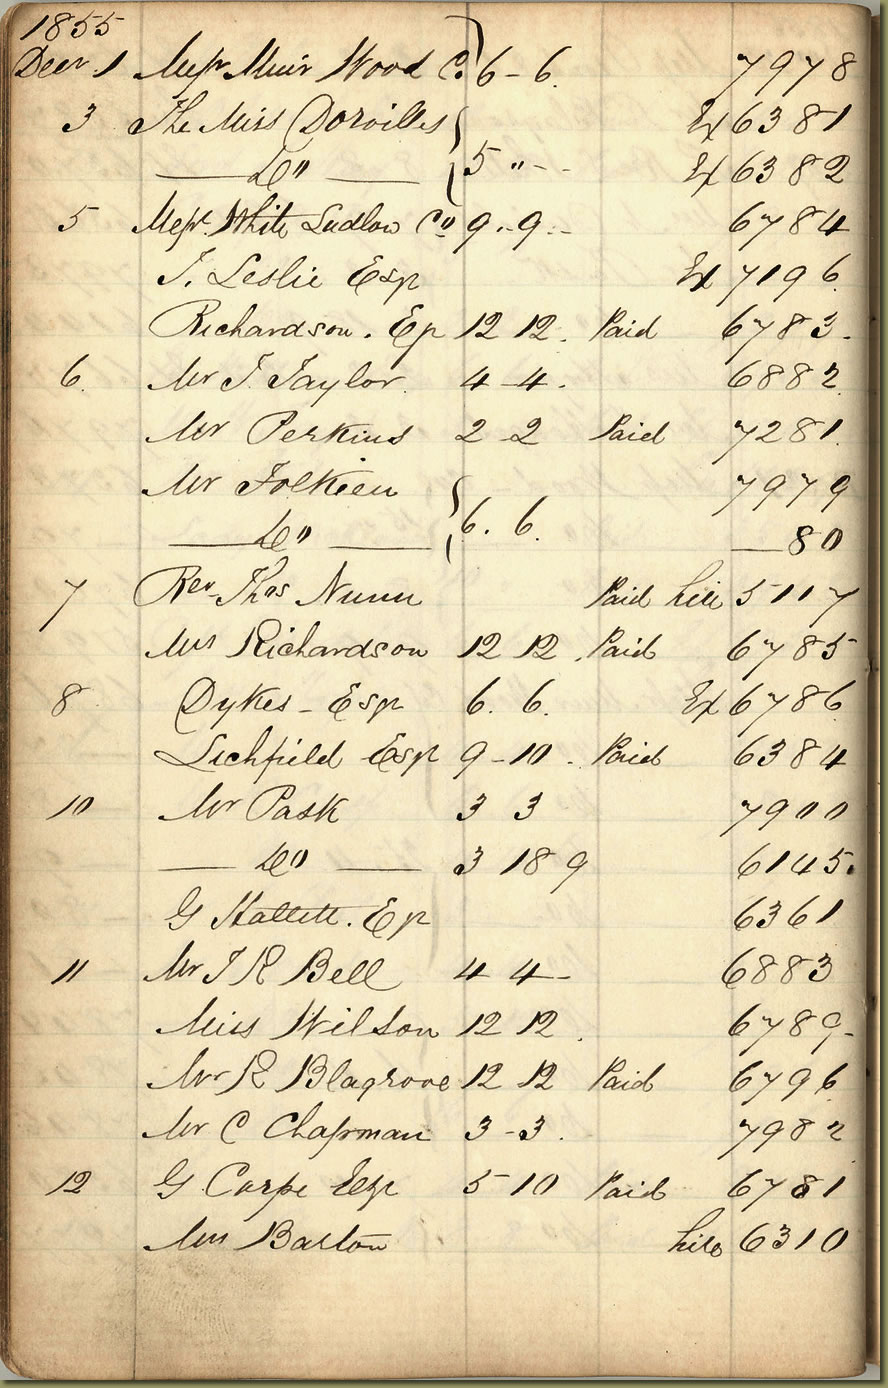 1855
Decr 1 Messrs Muir Wood Co. 6 - 6. 7978
3 The Miss Dorvilles Ex 6381
— Do — 5 " - - Ex 6382
5 Messrs White Ludlow Co 9 - 9 - 6784
J. Leslie Esqr Ex 7196.
Richardson. Esqr 12 12. Paid 6783.
6. Mr J Taylor. 4 - 4. 6882
Mr Perkins 2 - 2 Paid 7281.
Mr Folkien 7979
— Do — 6. 6. — 80
7 Rev Thos Nunn Paid hire 5117
Mrs Richardson 12 12. Paid 6785
8 Dykes - Esqr 6. 6. Ex 6786
Lichfield Esqr 9 - 10. Paid 6384
10 Mr Pask 3 3 7900
— Do — 3 18 9 6145.
G Hallett. Esqr 6361
11 Mr J R Bell 4 4 - 6883
Miss Wilson 12 12. 6789-
Mr R Blagrove 12 12 Paid 6796
Mr C Chapman 3 - 3. 7982
12 G Corpe Esqr 5 - 10 Paid 6781
Mrs Barton hire 6310